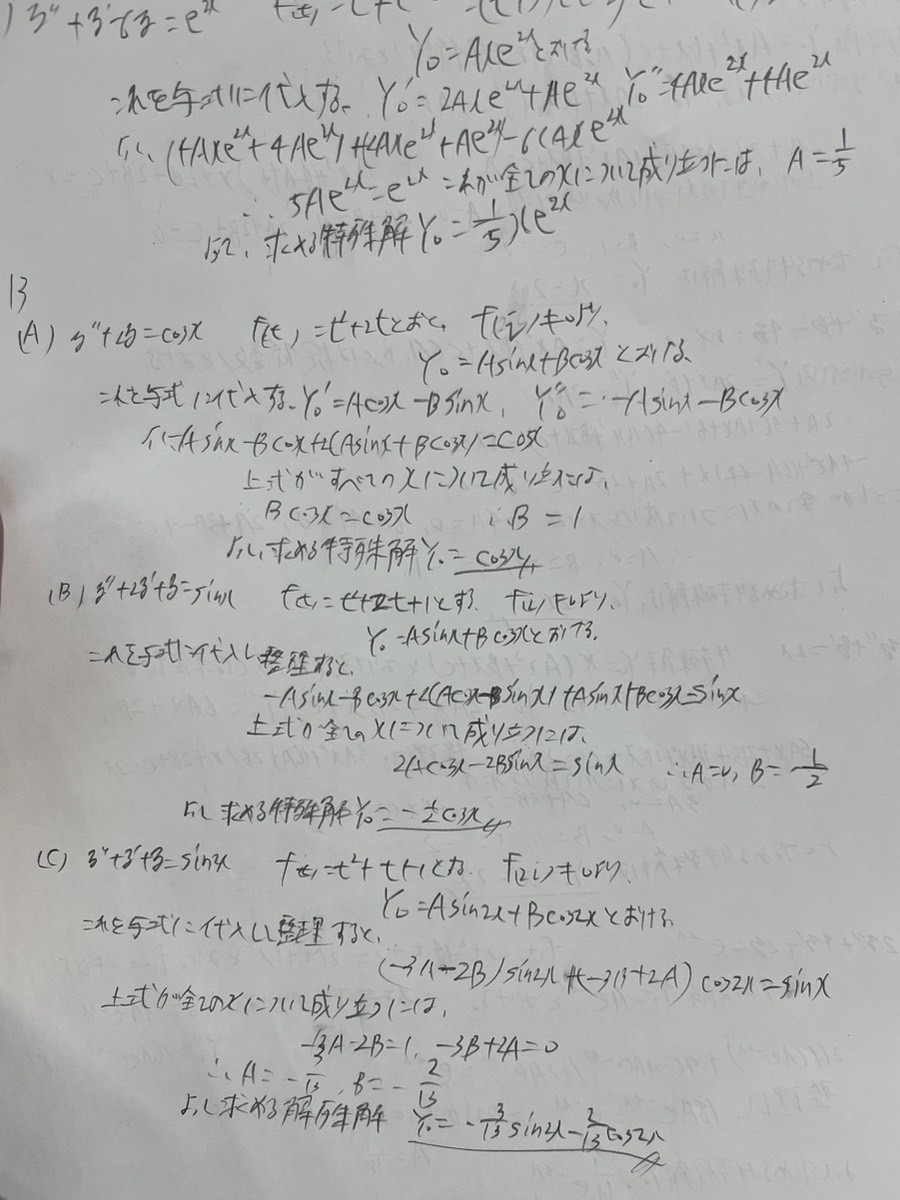 ) y''+y'-6y=e^{2x} f(t)=t²+t
Y₀=Axe^{2x}とおける
これを与式に代入する。Y₀'=2Axe^{2x}+Ae^{2x} Y₀''=4Axe^{2x}+4Ae^{2x}
∴(4Axe^{2x}+4Ae^{2x})+(2Axe^{2x}+Ae^{2x})-6(Axe^{2x}
∴ 5Ae^{2x}=e^{2x} これが全てのxについて成り立つには、A=1/5
よって、求める特殊解Y₀=1/5 xe^{2x}
13
(A) y''+2y=cosx f(t)=t²+2tとおく、f(i)≠0より、
Y₀=Asinx+Bcosxとおける。
これを与式に代入する。Y₀'=Acosx-Bsinx, Y₀''=-Asinx-Bcosx
∴-Asinx-Bcosx+2(Asinx+Bcosx)=cosx
上式がすべてのxについて成り立つには、
Bcosx=cosx ∴B=1
よって、求める特殊解Y₀=cosx
(B) y''+2y'+y=sinx f(t)=t²+2t+1とする。f(i)≠0より、
Y₀=Asinx+Bcosxとおける。
これを与式に代入し整理すると、
-Asinx-Bcosx+2(Acosx-Bsinx)+Asinx+Bcosx=sinx
上式が全てのxについて成り立つには、
2Acosx-2Bsinx=sinx ∴A=0, B=-1/2
よって求める特殊解Y₀=-1/2cosx
(C) y''+y'+y=sin2x f(t)=t²+t+1とする。f(2i)≠0より、
Y₀=Asin2x+Bcos2xとおける。
これを与式に代入し整理すると、
(-3A-2B)sin2x+(-3B+2A)cos2x=sinx
上式が全てのxについて成り立つには、
-3A-2B=1, -3B+2A=0
∴A=-3/13, B=-2/13
よって求める解殊解 Y₀=-3/13sin2x-2/13cos2x